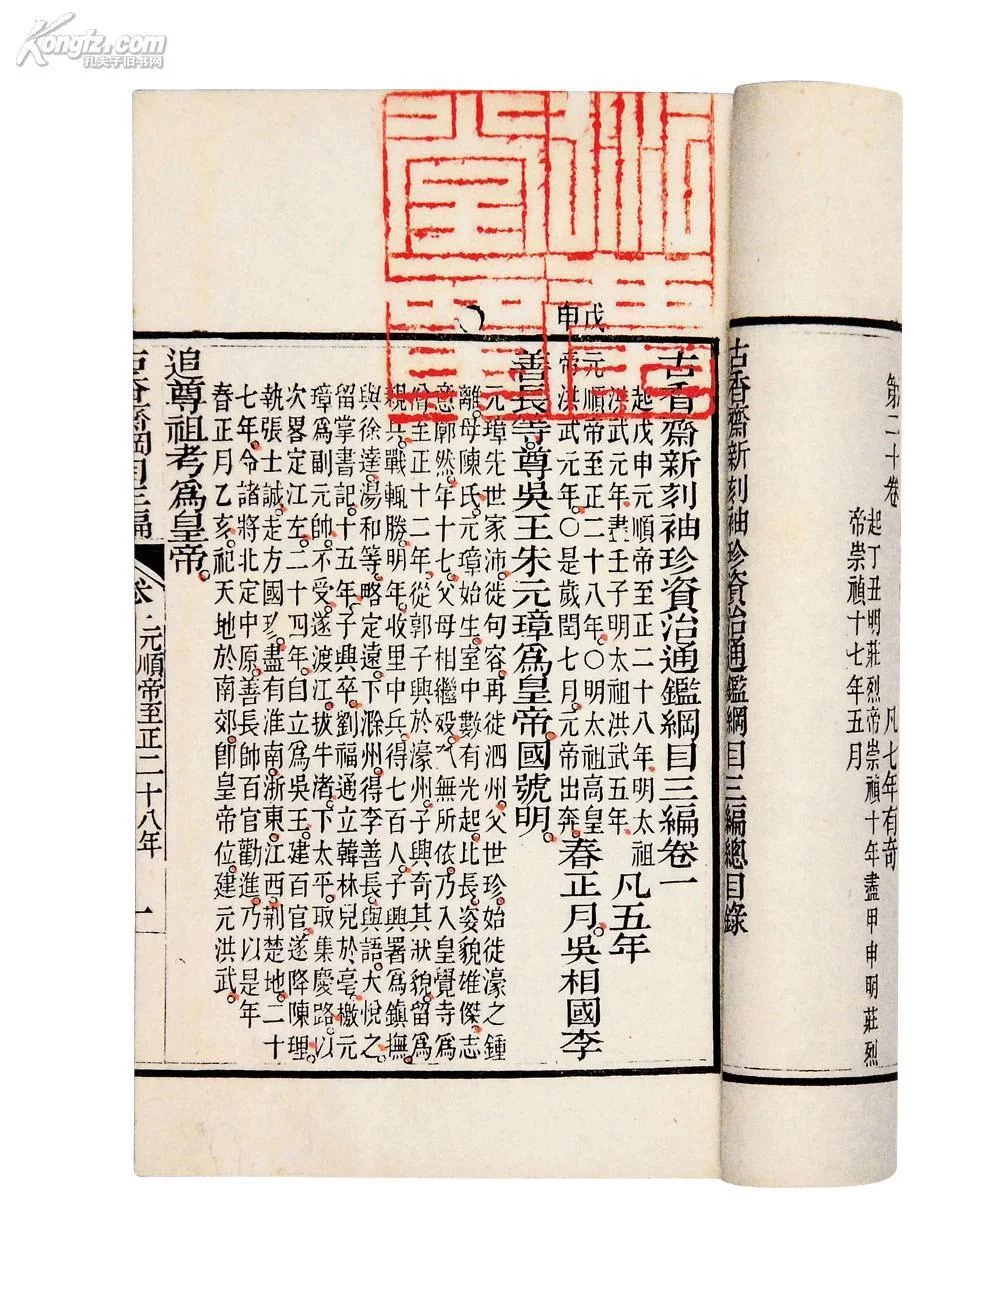 Kongfz.com
孔夫子旧书网
第二十卷
凡七年有奇
起丁丑明莊烈帝崇禎十年盡甲申明莊烈
帝崇禎十七年五月
古香齋新刻袖珍資治通鑑綱目三編總目錄
古香齋新刻袖珍資治通鑑綱目三編卷一
起戊申元順帝至正二十八年明太祖
洪武元年盡壬子明太祖洪武五年
凡五年
戊
申
元順帝至正二十八年○明太祖高皇
帝洪武元年○是歲閏七月元帝出奔
春正月吳相國李
善長等尊吳王朱元璋爲皇帝國號明
元璋先世家沛徙句容再徙泗州父世珍始徙濠之鍾
離母陳氏元璋始生室中數有光起比長姿貌雄傑志
意廓然年十七父母相繼歿無所依乃入皇覺寺爲
僧至正十二年從郭子興於濠州子興奇其狀貌留爲
親兵戰輒勝明年收里中兵得七百人子興署爲鎮撫
與徐達湯和等略定遠下滁州得李善長與語大悅之
留掌書記十五年子興卒劉福通立韓林兒於亳檄元
璋爲副元帥不受遂渡江拔牛渚下太平取集慶路以
次畧定江左二十四年自立爲吳王建百官遂降陳理
執張士誠走方國珍盡有淮南浙東江西荆楚地二十
七年令諸將北定中原善長帥百官勸進乃以是年
春正月乙亥祀天地於南郊卽皇帝位建元洪武
追尊祖考爲皇帝
古香齋綱目三編
卷一元順帝至正二十八年
一